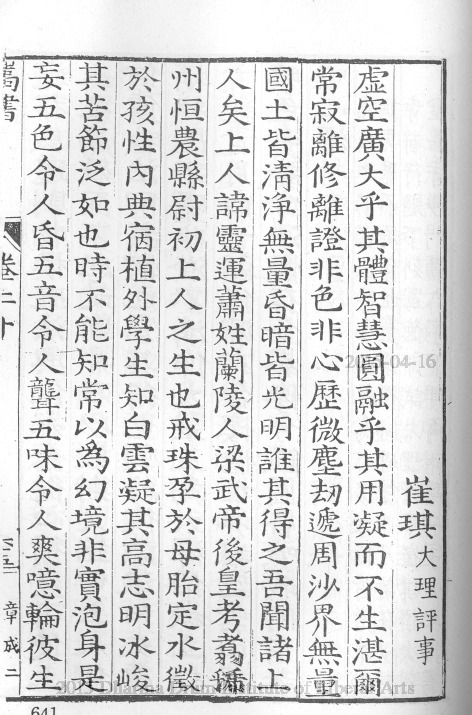 崔琪 大理評事
虛空廣大乎其體智慧圓融乎其用凝而不生湛爾
常寂離修離證非色非心歷微塵劫遞周沙界無量
國土皆清淨無量昏暗皆光明誰其得之吾聞諸上
人矣上人諱靈運蕭姓蘭陵人梁武帝後皇考翥
州恒農縣尉初上人之生也戒珠孕於母胎定水徵
於孩性內典宿植外學生知白雲凝其高志明冰峻
其苦節泛如也時不能知常以為幻境非實泡身是
妄五色令人昏五音令人聾五味令人爽噫輪彼生
嵩書 卷二十 章成二
641
-04-16
Dharma Drum Institute of Liberal Arts